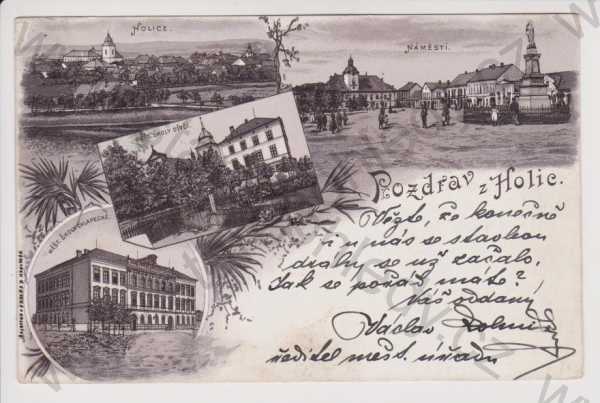 HOLICE.
NÁMĚSTÍ.
ŠKOLY DÍVČÍ
MĚŠŤ. ŠKOLA CHLAPECKÁ.
Pozdrav z Holic.
Vězte, že konečně
i u nás se stavbou
dráhy se už začalo,
Jak se pořád máte?
Váš oddaný
Václav
ředitel měst. úřadu